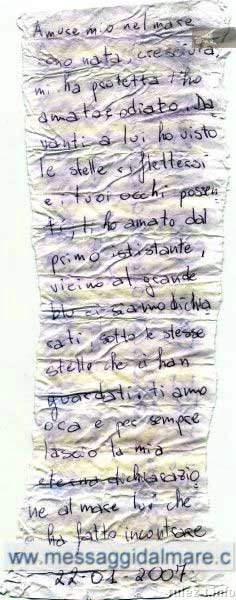 Amore mio nel mare
sono nata, cresciuta,
mi ha protetta l'ho
amato e odiato. Da
vanti a lui ho visto
le stelle riflettersi
e i tuoi occhi possen
ti, ti ho amato dal
primo ististante,
vicino al grande
blu ci siamo dichia
rati, sotto le stesse
stelle che ci han
guardati, ti amo
ora e per sempre
lascio la mia
eterna dichiarazio
ne al mare lui che
ci ha fatto incontrare
www.messaggidalmare.c
22-01-2007